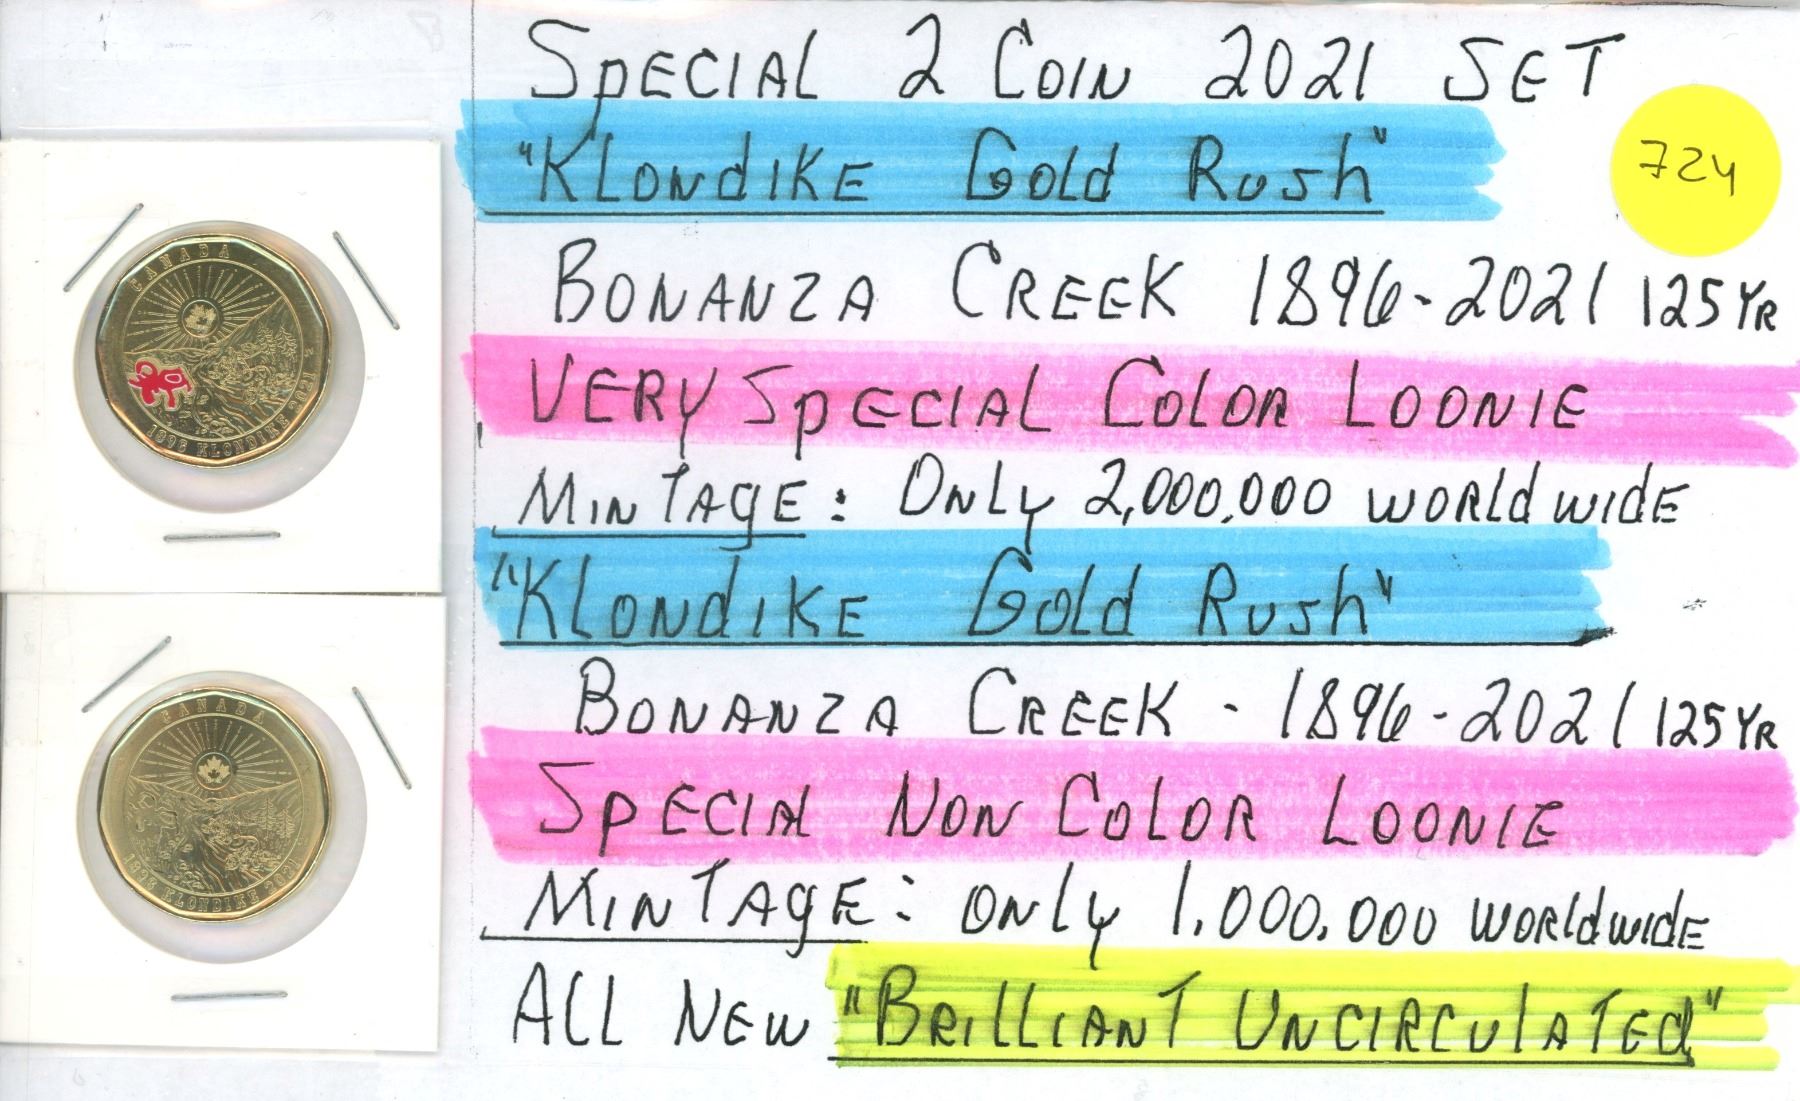 SPECIAL 2 COIN 2021 SET
"KLONDIKE GOLD RUSH"
724
BONANZA CREEK 1896-2021 125 YR
VERY SPECIAL COLOR LOONIE
MINTAGE: ONLY 2,000,000 WORLD WIDE
"KLONDIKE GOLD RUSH"
BONANZA CREEK - 1896-2021 125 YR
SPECIAL NON COLOR LOONIE
MINTAGE: ONLY 1,000,000 WORLDWIDE
ALL NEW "BRILLIANT UNCIRCULATED"
CANADA
1896 KLONDIKE 2021
CANADA
1896 KLONDIKE 2021